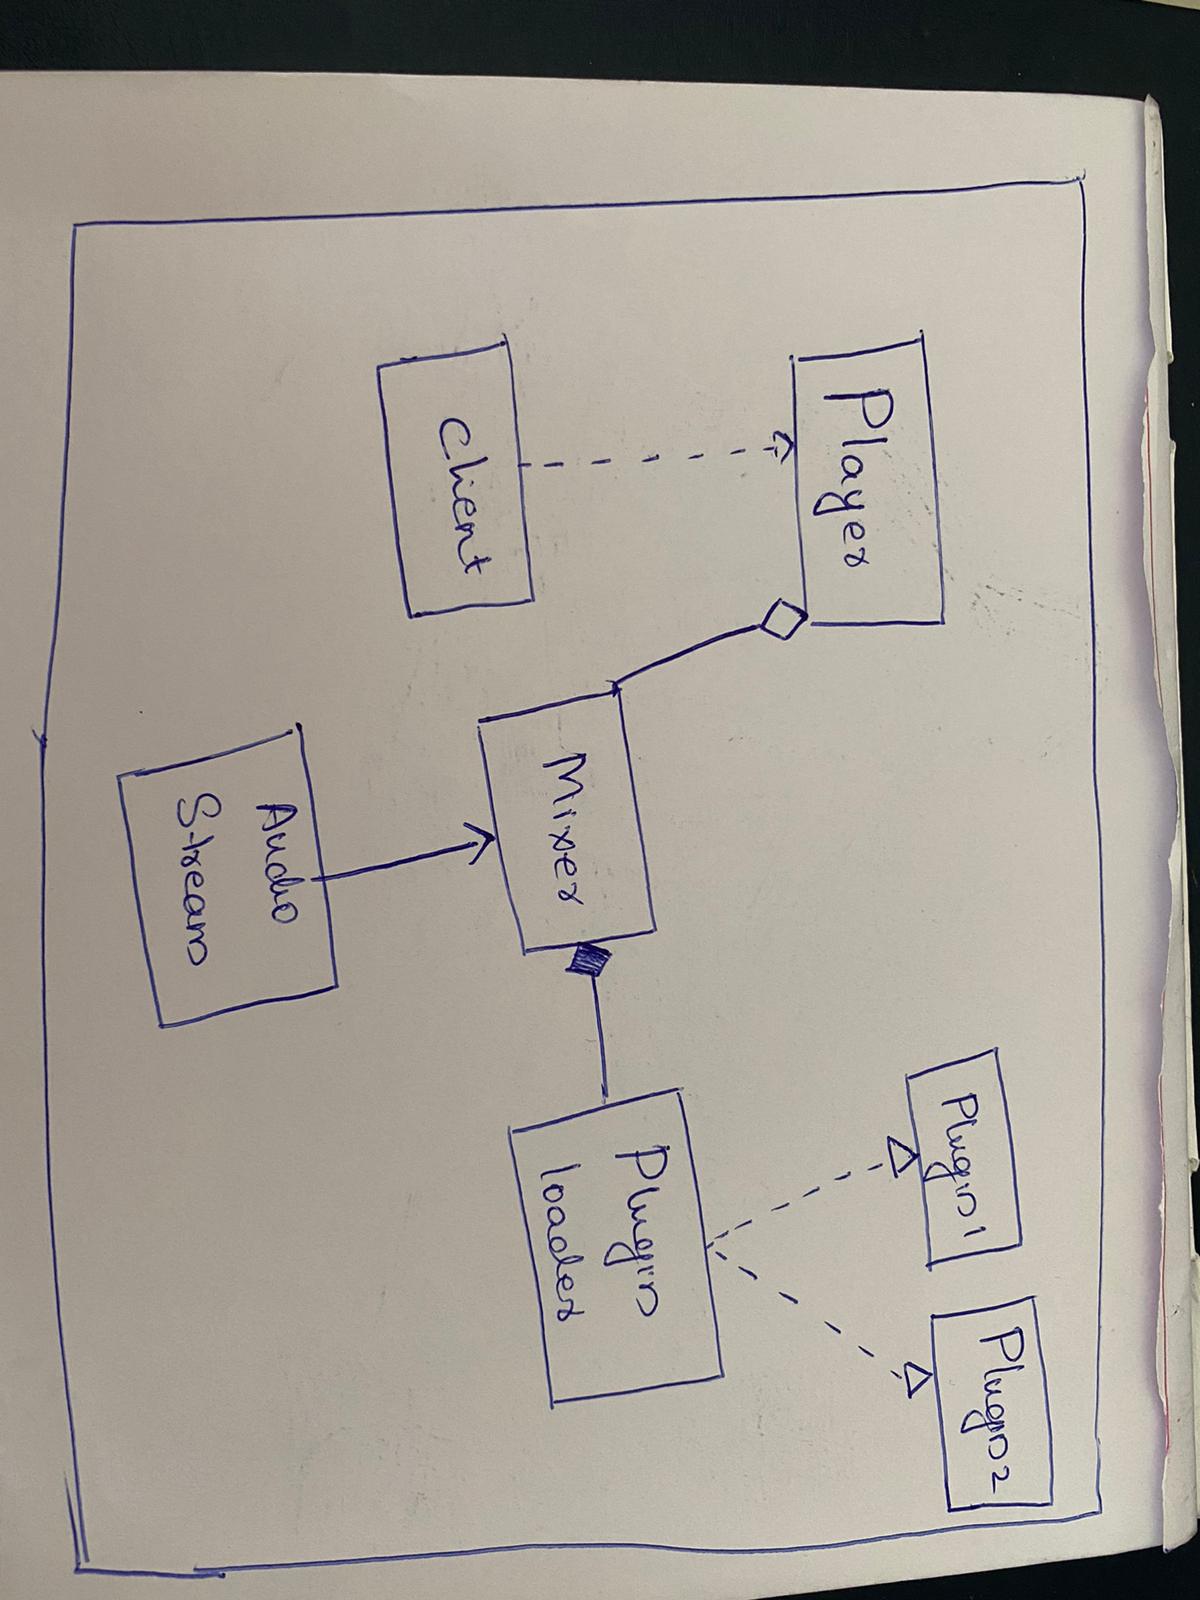 Plugin 1
Plugin 2
Player
Plugin
loader
Mixer
client
Audio
Stream